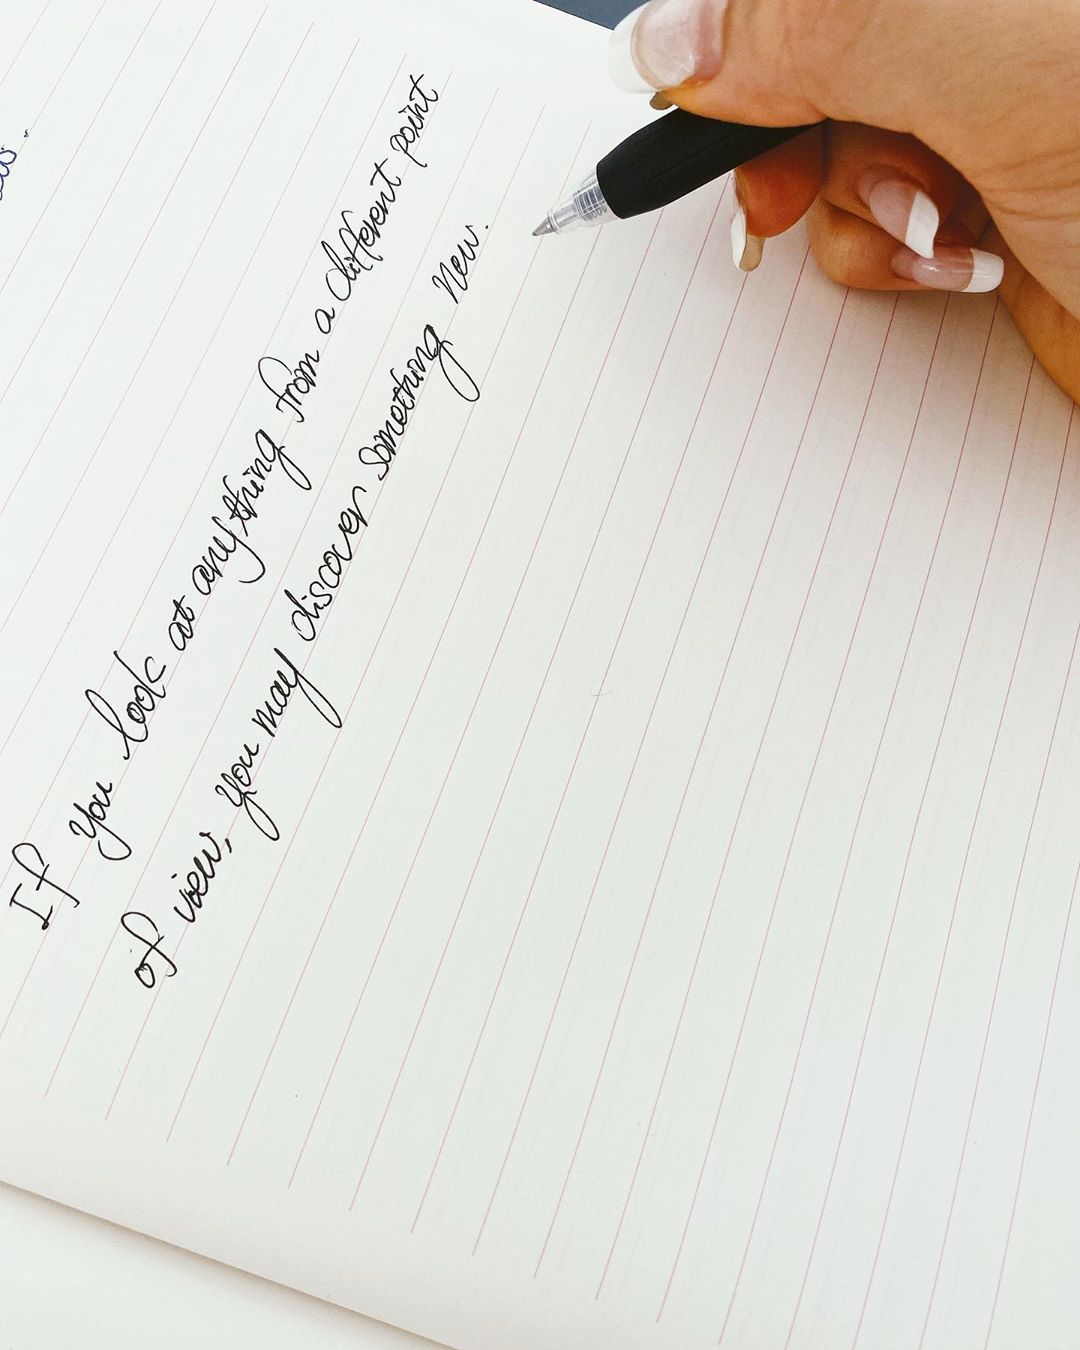 If you look at anything from a different point
of view, you may discover something new.